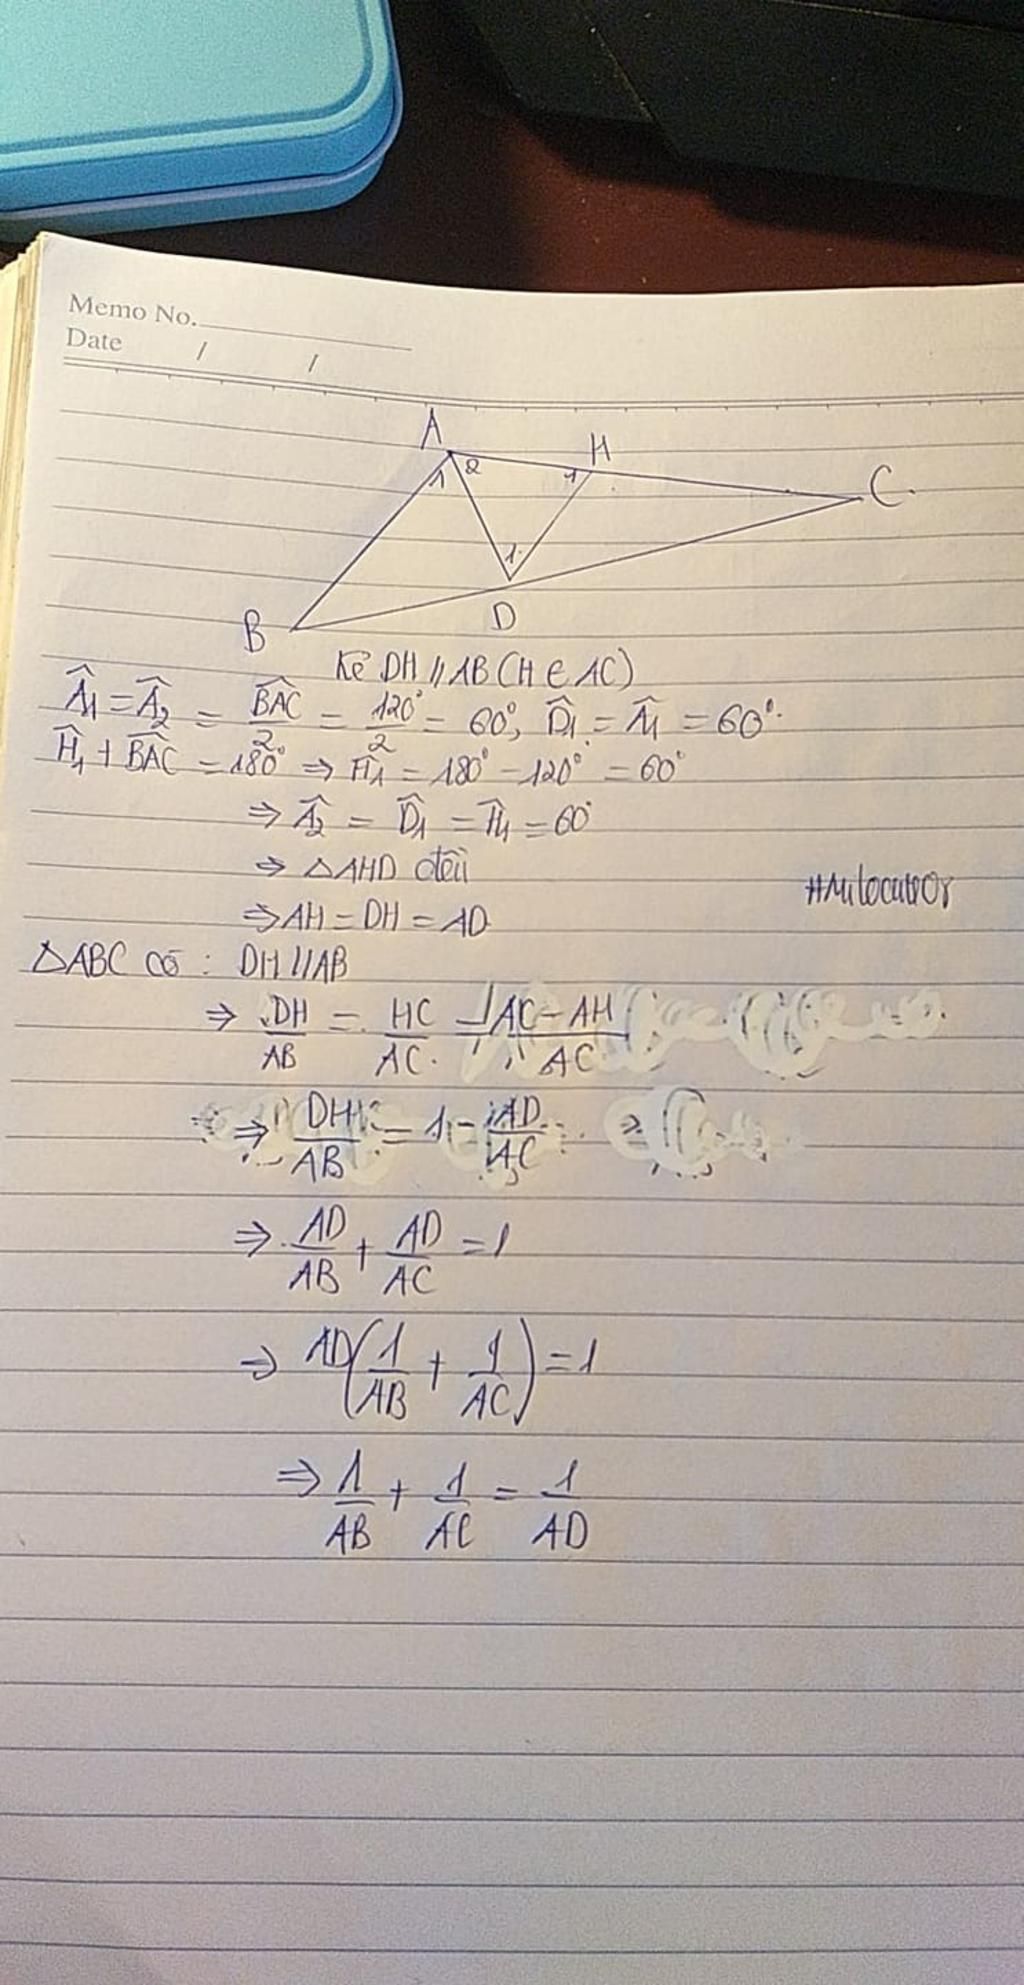 Memo No.
Date / /
A
H
1 2
1
C.
1
B
D
Kẻ DH // AB (H ∈ AC)
Â₁ = Â₂ = BAC/2 = 120°/2 = 60°, D̂₁ = Â₁ = 60°.
Ĥ₁ + BAC = 180° ⇒ Ĥ₁ = 180° - 120° = 60°
⇒ Â₂ = D̂₁ = Ĥ₁ = 60°
⇒ △AHD đều
⇒ AH = DH = AD
△ABC có : DH // AB
⇒ DH/AB = HC/AC = AC - AH/AC
⇒ DH/AB = 1 - AD/AC
⇒ AD/AB + AD/AC = 1
⇒ AD(1/AB + 1/AC) = 1
⇒ 1/AB + 1/AC = 1/AD